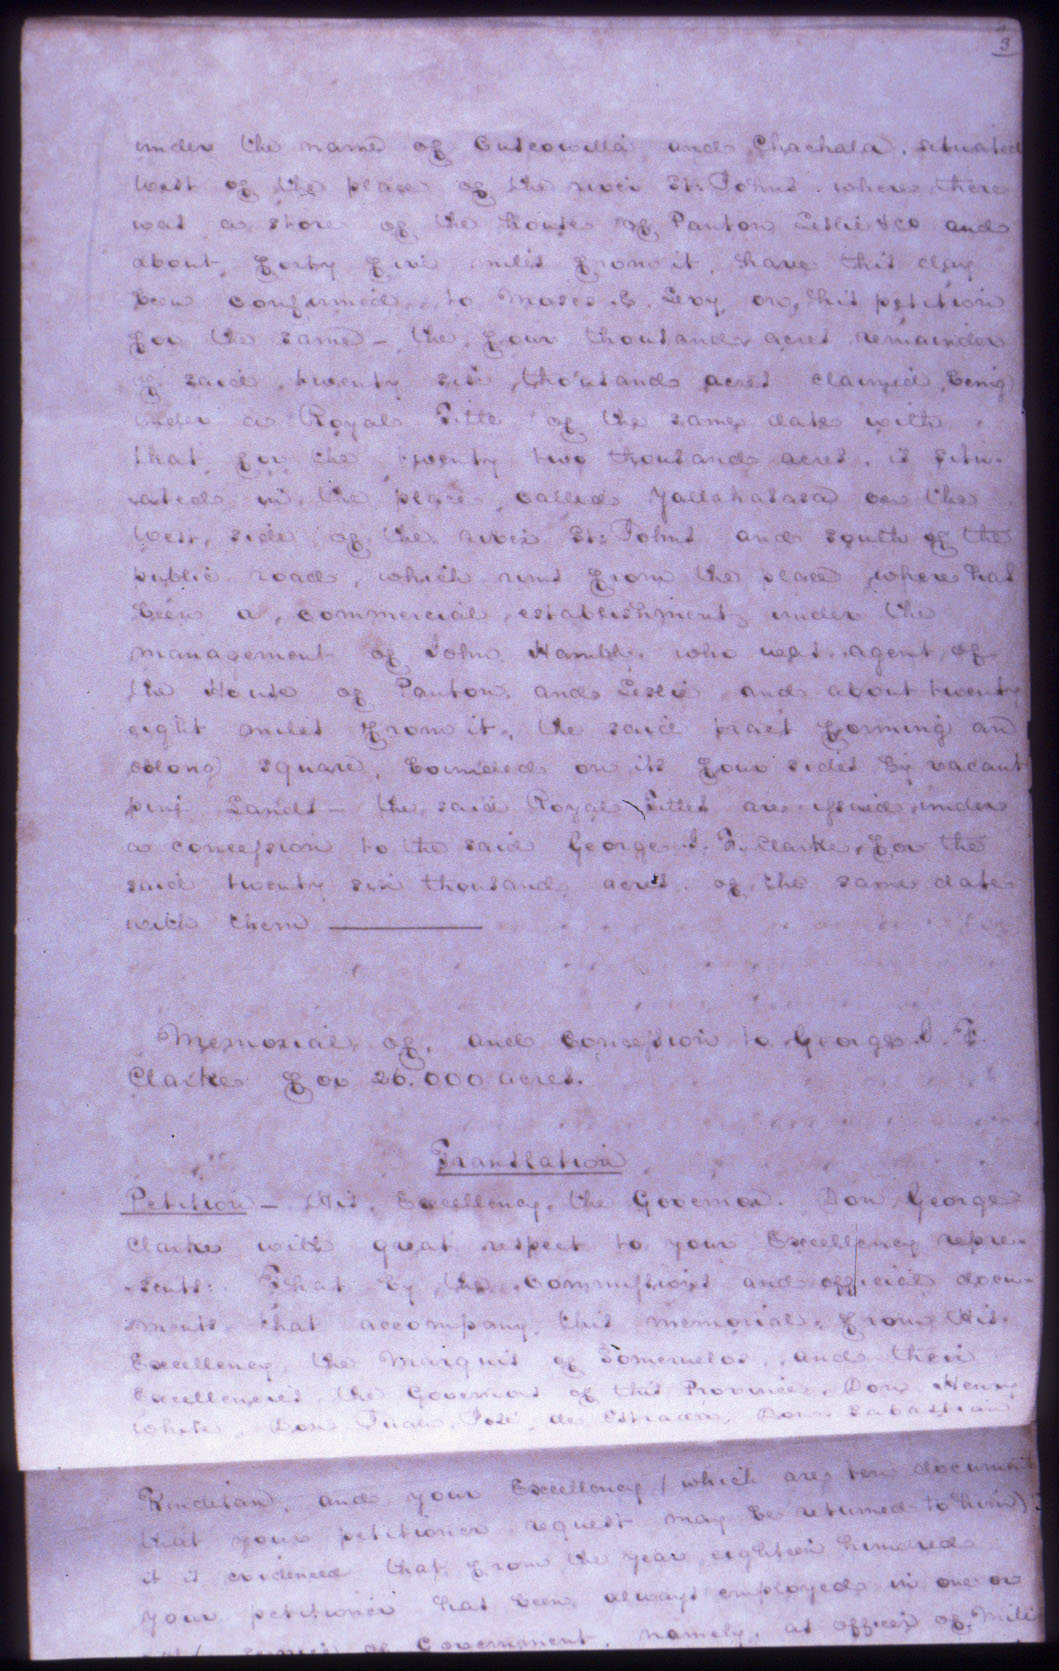 3
under the name of Cuscowilla and Chachala. situated
West of the place of the river St: Johns. where there
was a store of the house of Panton Leslie & Co and
about forty five miles from it, have this day
been confirmed, to Moses E. Levy, on, his petition
for the same – the, four thousand acres remainder
of said, twenty six thousand acres claimed, being
under a Royal Title of the same date with
that for the twenty two thousand acres. is situ-
ated in the place called Yallahasasa on the
West, side of the river St: Johns and south of the
public road, which runs from the place, where has
been a, commercial, establishment, under the
management of John Hambly. who was agent of
the House of Panton, and Leslie and about twenty
eight miles from it, the said tract forming an
oblong square, bounded on its four sides by vacant
piny Lands – the said Royal Titles are issued under
a concession to the said George J. F. Clarke, for the
said twenty six thousand acres. of the same date
with them
Memorial of, and Concession to George J. F.
Clarke for 26.000 acres.
Translation
Petition – His. Excellency, the Governor. Don George
Clarke with great respect to your Excellency repre-
-sents: That by the Commissions and official docu-
ments. that accompany this memorial, from His,
Excellency, the Marquis of Someruelos, and their
Excellencies, the Governors of this Province, Don Henry
White, Don Juan José de Estrada, Don Sabastian
Kindelan, and your Excellency (which are ten document
that your petitioner request may be returned to him)
it is evidenced that from the year eighteen hundred
your petitioner has been always employed in one or
service of Government, namely, as officer of Mili